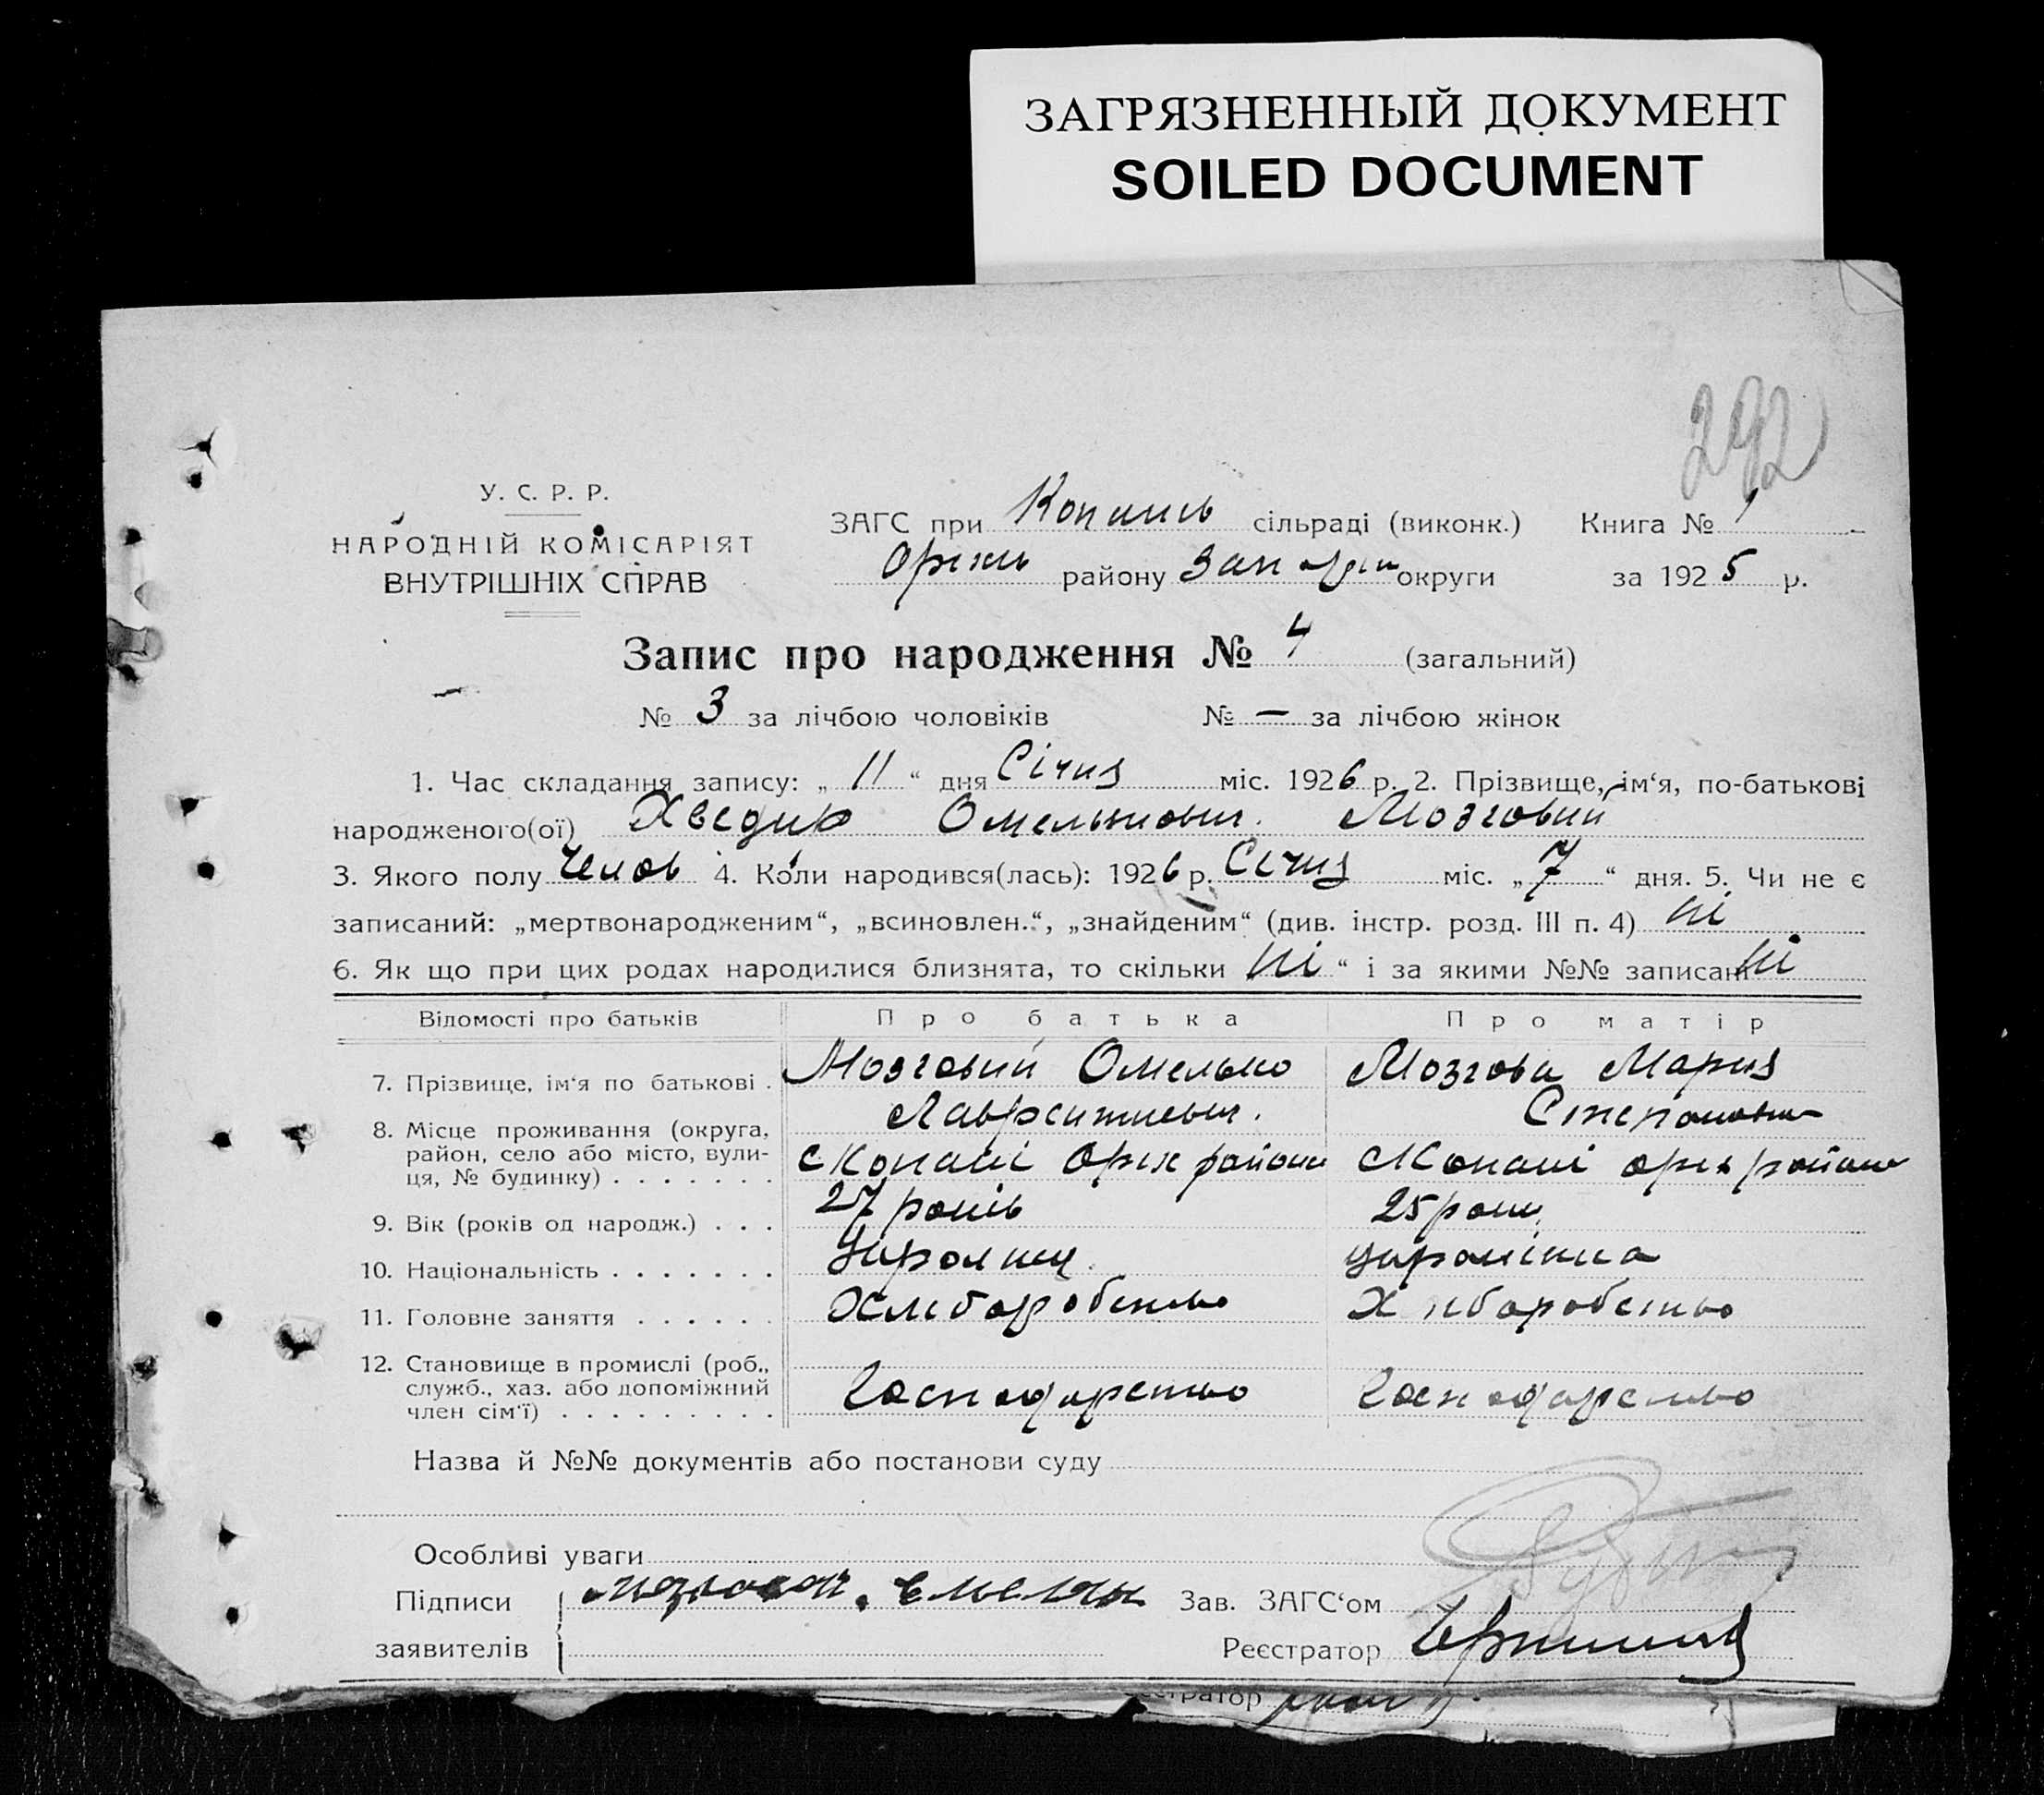 ЗАГРЯЗНЕННЫЙ ДОКУМЕНТ
SOILED DOCUMENT
292
У. С. Р. Р.
НАРОДНІЙ КОМІСАРІЯТ
ВНУТРІШНІХ СПРАВ
ЗАГС при Копань сільраді (виконк.) Книга № 1
Оріхів району Запоріж округи за 1925 р.
Запис про народження № 4 (загальний)
№ 3 за лічбою чоловіків № — за лічбою жінок
1. Час складання запису: „ 11 “ дня Січня міс. 1926 р. 2. Прізвище, ім‘я, по-батькові
народженого(ої) Хведир Омелькович. Мозговий
3. Якого полу Челов 4. Коли народився(лась): 1926 р. Січня міс. „ 7 “ дня. 5. Чи не є
записаний: „мертвонародженим“, „всиновлен.“, „знайденим“ (див. інстр. розд. III п. 4) ні
6. Як що при цих родах народилися близнята, то скільки ні “ і за якими №№ записані ні
Відомості про батьків Про батька Про матір
7. Прізвище, ім‘я по батькові . Мозговий Омелько Мозгова Мария
Лаврентиевич. Степановна
8. Місце проживання (округа, район, село або місто, вули-ця, № будинку) . . . . . . . с Копані Оріх району с Копані оріх району
9. Вік (років од народж.) . . . 27 років 25 роки
10. Національність . . . . . . . Українец. українка
11. Головне заняття . . . . . . Хлиборобство Хлиборобство
12. Становище в промислі (роб., служб., хаз. або допоміжний член сім‘ї) . . . . . . . . . Господарство Господарство
Назва й №№ документів або постанови суду
Особливі уваги
Підписи мозговой. Емелян Зав. ЗАГС‘ом
заявителів Реєстратор